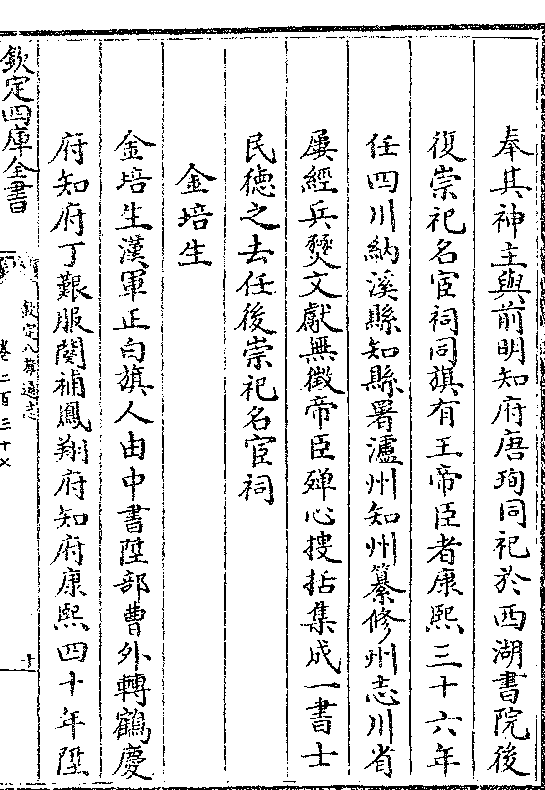 奉其神主與前明知府唐珣同祀於西湖書院後
復崇祀名宦祠同旗有王帝臣者康熙三十六年
任四川納溪縣知縣署瀘州知州纂修州志川省
屢經兵燹文獻無徵帝臣殫心搜括集成一書士
民德之去任後崇祀名宦祠
金培生
金培生漢軍正白旗人由中書陞部曹外轉鶴慶
府知府丁艱服闋補鳳翔府知府康熙四十年陞
欽定四庫全書
欽定八旗通志
卷二百三十